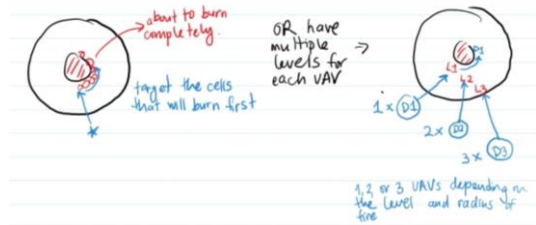 about to burn
completely.
target the cells
that will burn first
OR have
multiple
levels for
each UAV
P1
L1
L2
L3
1 x D1
2x D2
3x D3
1,2 or 3 UAVs depending on
the level and radius of
fire